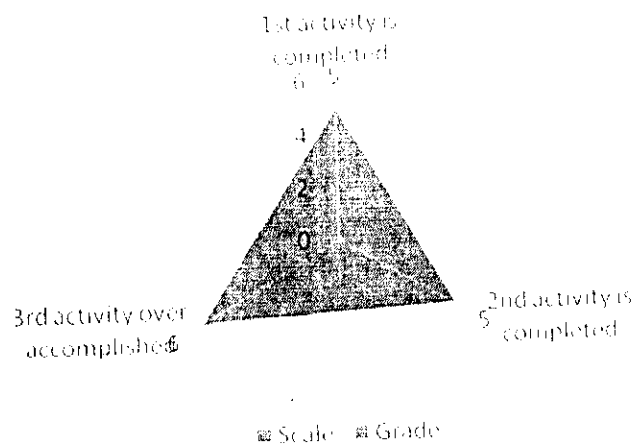 1st activity is
completed
6 5
4
2
0
3rd activity over
accomplished 6
2nd activity is
5 completed
Scale Grade